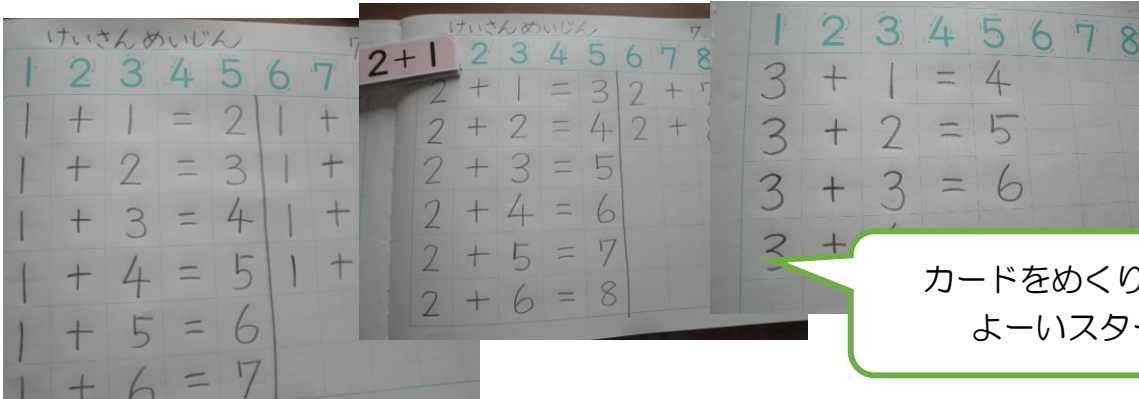 けいさんめいじん 7
1 2 3 4 5 6 7
1 + 1 = 2 1 +
1 + 2 = 3 1 +
1 + 3 = 4 1 +
1 + 4 = 5 1 +
1 + 5 = 6
1 + 6 = 7
けいさんめいじん 7
2+1
2 3 4 5 6 7 8
2 + 1 = 3 2 + 7
2 + 2 = 4 2 + 8
2 + 3 = 5
2 + 4 = 6
2 + 5 = 7
2 + 6 = 8
1 2 3 4 5 6 7 8
3 + 1 = 4
3 + 2 = 5
3 + 3 = 6
3 +
カードをめくり
よーいスター